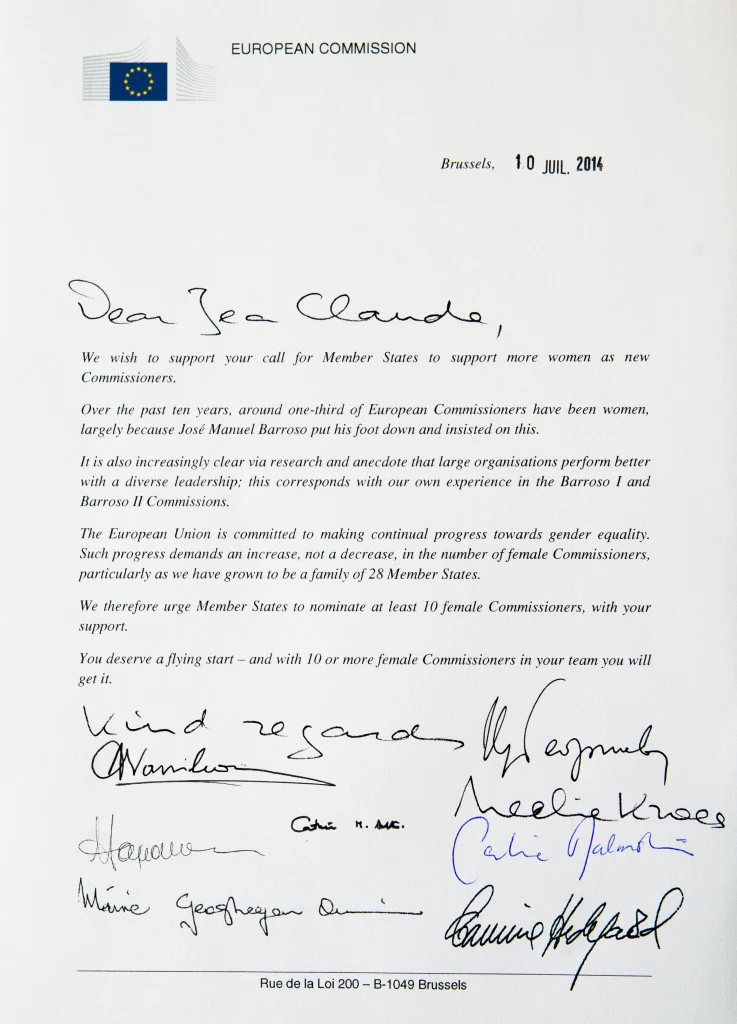 EUROPEAN COMMISSION
Brussels, 10 JUIL. 2014
Dear Jea Claude,
We wish to support your call for Member States to support more women as new
Commissioners.
Over the past ten years, around one-third of European Commissioners have been women,
largely because José Manuel Barroso put his foot down and insisted on this.
It is also increasingly clear via research and anecdote that large organisations perform better
with a diverse leadership; this corresponds with our own experience in the Barroso I and
Barroso II Commissions.
The European Union is committed to making continual progress towards gender equality.
Such progress demands an increase, not a decrease, in the number of female Commissioners,
particularly as we have grown to be a family of 28 Member States.
We therefore urge Member States to nominate at least 10 female Commissioners, with your
support.
You deserve a flying start – and with 10 or more female Commissioners in your team you will
get it.
Kind regards
Neelie Kroes
Máire Geoghegan Quinn
Rue de la Loi 200 – B-1049 Brussels